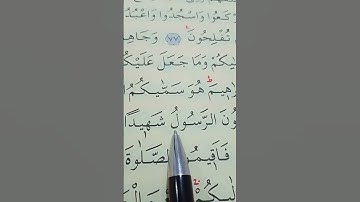 كَعُوا وَاسْجُدُوا وَاعْبُدُ
تُفْلِحُونَ ﴿٧٧﴾ وَجَاهِ
يكُمْ وَمَا جَعَلَ عَلَيْكُ
هِيمَ هُوَ سَمّٰيكُمُ
ونَ الرَّسُولُ شَهِيدًا
فَاَقِيمُوا الصَّلٰوةَ
ليكُمْ